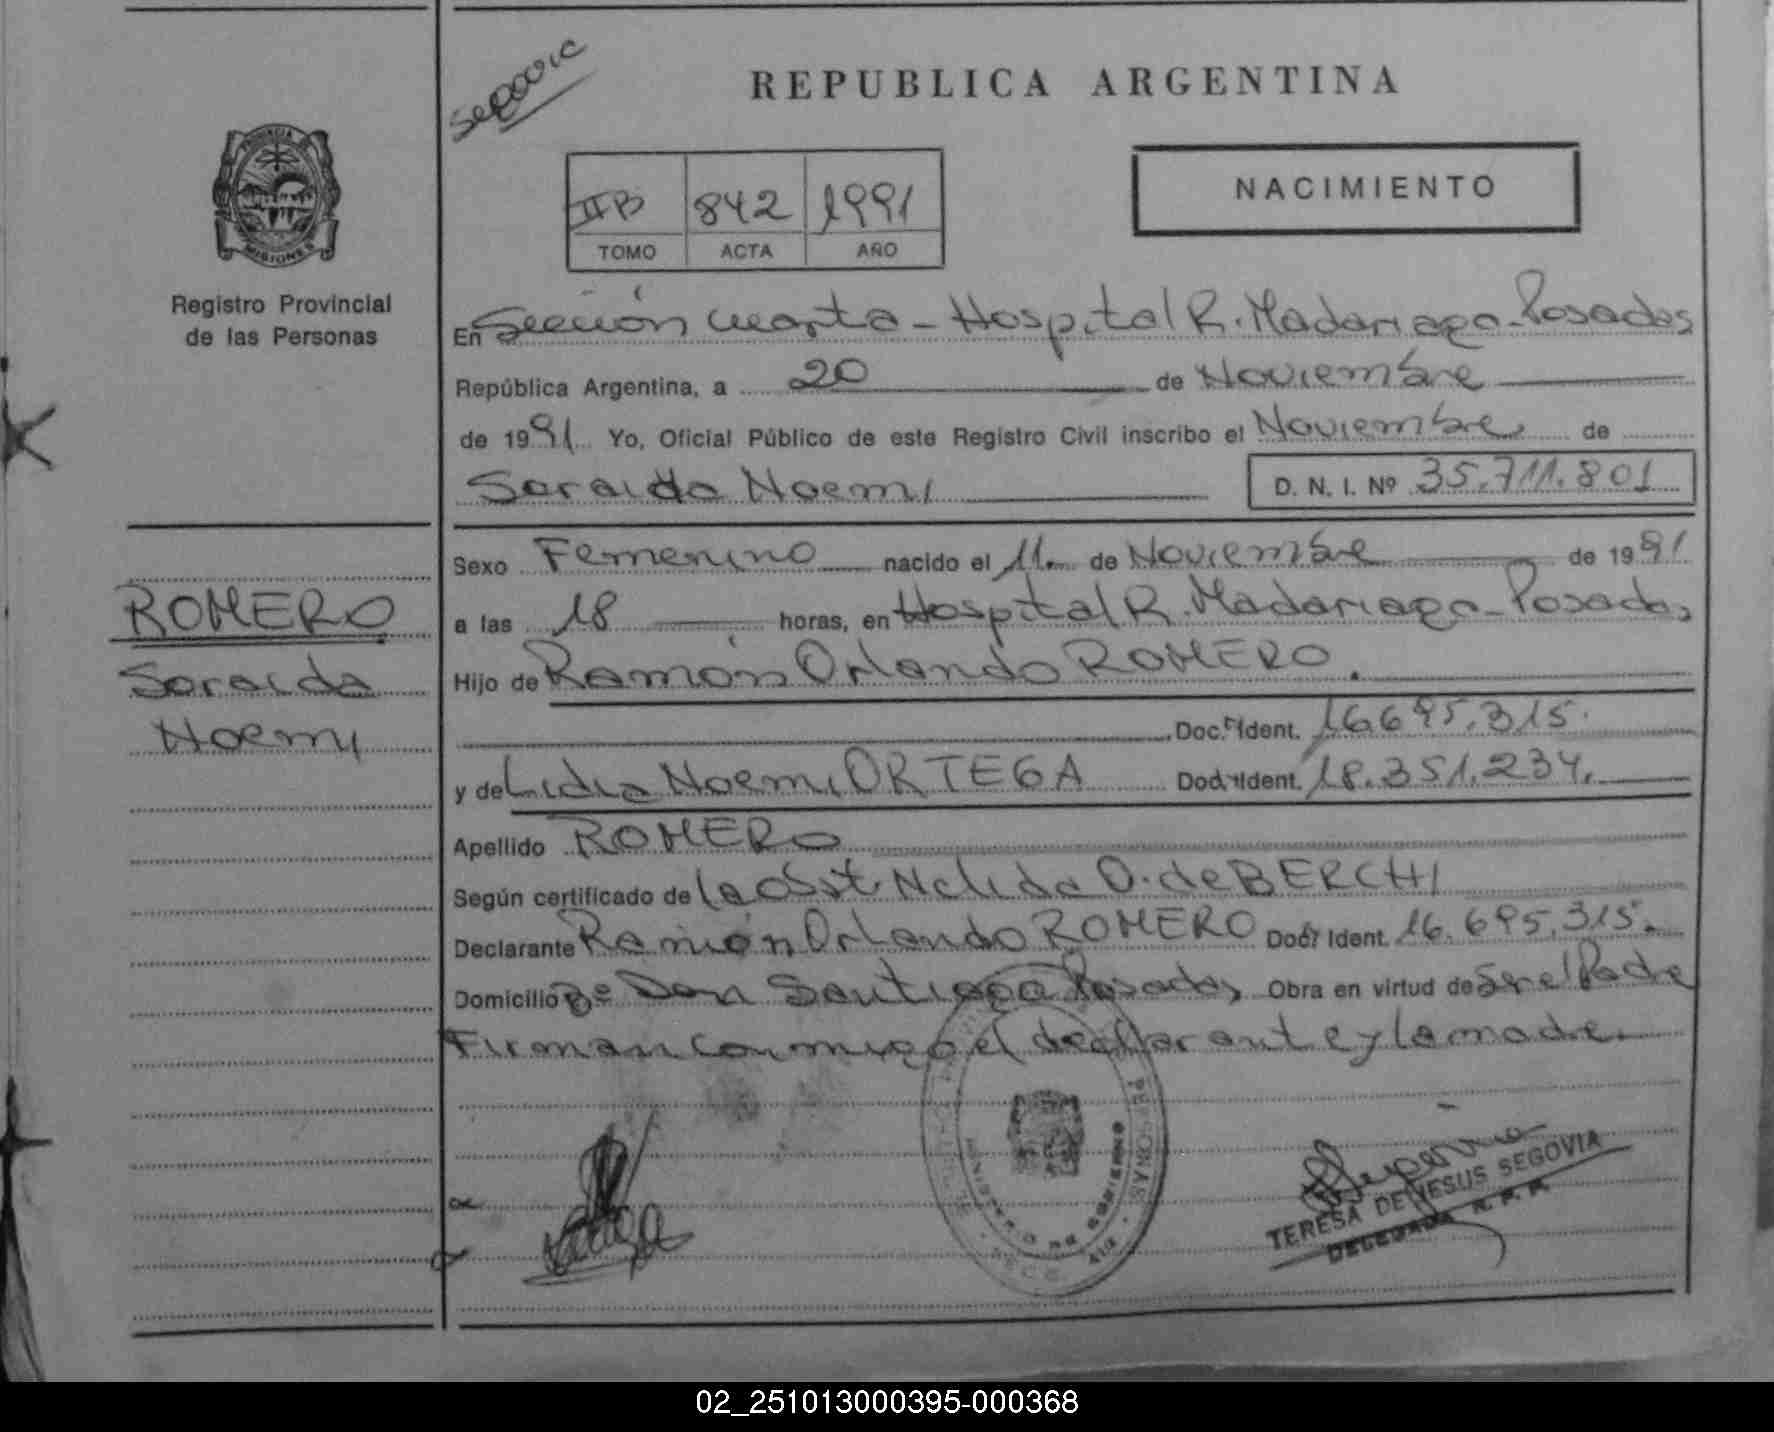 Segovia
REPUBLICA ARGENTINA
PROVINCIA
MISIONES
Registro Provincial
de las Personas
IIB 842 1991
TOMO ACTA AÑO
NACIMIENTO
En Sección Cuarta - Hospital R. Madariaga - Posadas
República Argentina, a 20 de Noviembre
de 1991 Yo, Oficial Público de este Registro Civil inscribo el Noviembre de
Soraida Noemi D. N. I. Nº 35.711.801
Sexo Femenino nacido el 11 de Noviembre de 1991
ROMERO
Soraida
Noemi
a las 18 horas, en Hospital R. Madariaga - Posadas
Hijo de Ramón Orlando ROMERO.
Doc. Ident. 16.695.315.
y de Lidia Noemi ORTEGA Doc. Ident. 18.351.234.
Apellido ROMERO
Según certificado de la Obst. Nelida O. de BERCHI
Declarante Ramón Orlando ROMERO Doc. Ident. 16.695.315.
Domicilio Bº Don Santiago Posadas Obra en virtud de Ser el Padre
Firman conmigo el declarante y la madre.
MINISTERIO DE GOBIERNO
TERESA DE JESUS SEGOVIA
DELEGADA R. P. P.
02_251013000395-000368